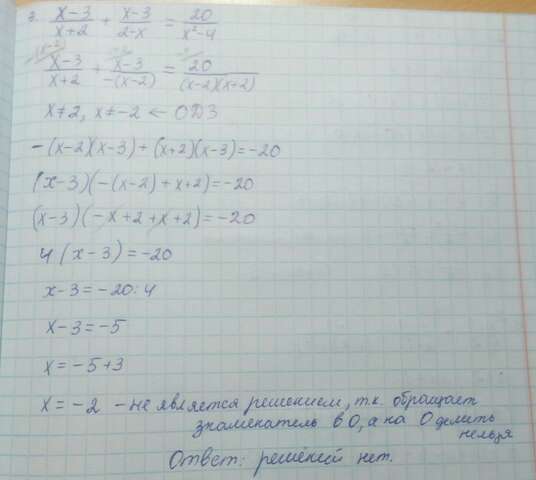 3. x-3/x+2 + x-3/2-x = 20/x²-4
x-3/x+2 + x-3/-(x-2) = 20/(x-2)(x+2)
x≠2, x≠-2 ← ОДЗ
-(x-2)(x-3)+(x+2)(x-3)=-20
(x-3)(-(x-2)+x+2)=-20
(x-3)(-x+2+x+2)=-20
4(x-3)=-20
x-3=-20:4
x-3=-5
x=-5+3
x=-2 - не является решением, т.к. обращает
знаменатель в 0, а на 0 делить
нельзя
Ответ: решений нет.